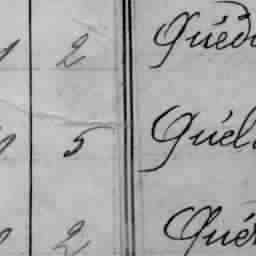 2 Quédu
5 Quél
2 Qué